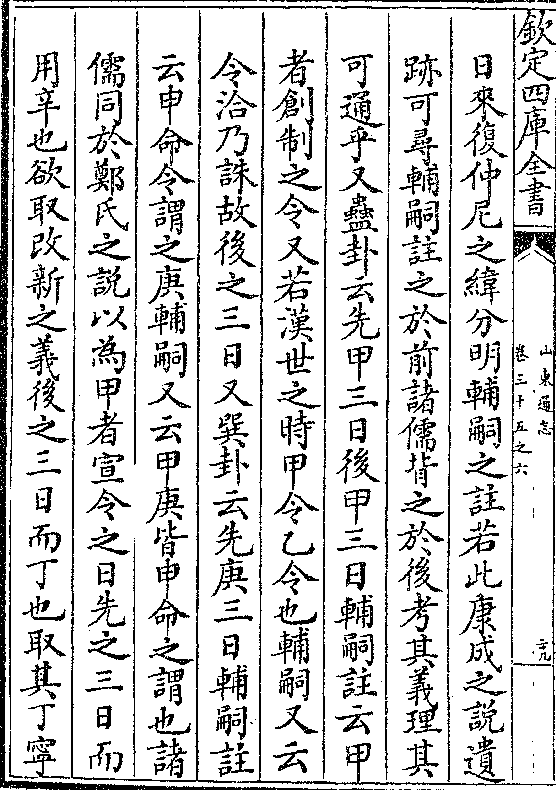 欽定四庫全書
山東通志
卷三十五之六
日來復仲尼之緯分明輔嗣之註若此康成之說遺
跡可尋輔嗣註之於前諸儒背之於後考其義理其
可通乎又蠱卦云先甲三日後甲三日輔嗣註云甲
者創制之令又若漢世之時甲令乙令也輔嗣又云
令洽乃誅故後之三日又巽卦云先庚三日輔嗣註
云申命令謂之庚輔嗣又云甲庚皆申命之謂也諸
儒同於鄭氏之說以為甲者宣令之日先之三日而
用辛也欲取改新之義後之三日而丁也取其丁寧